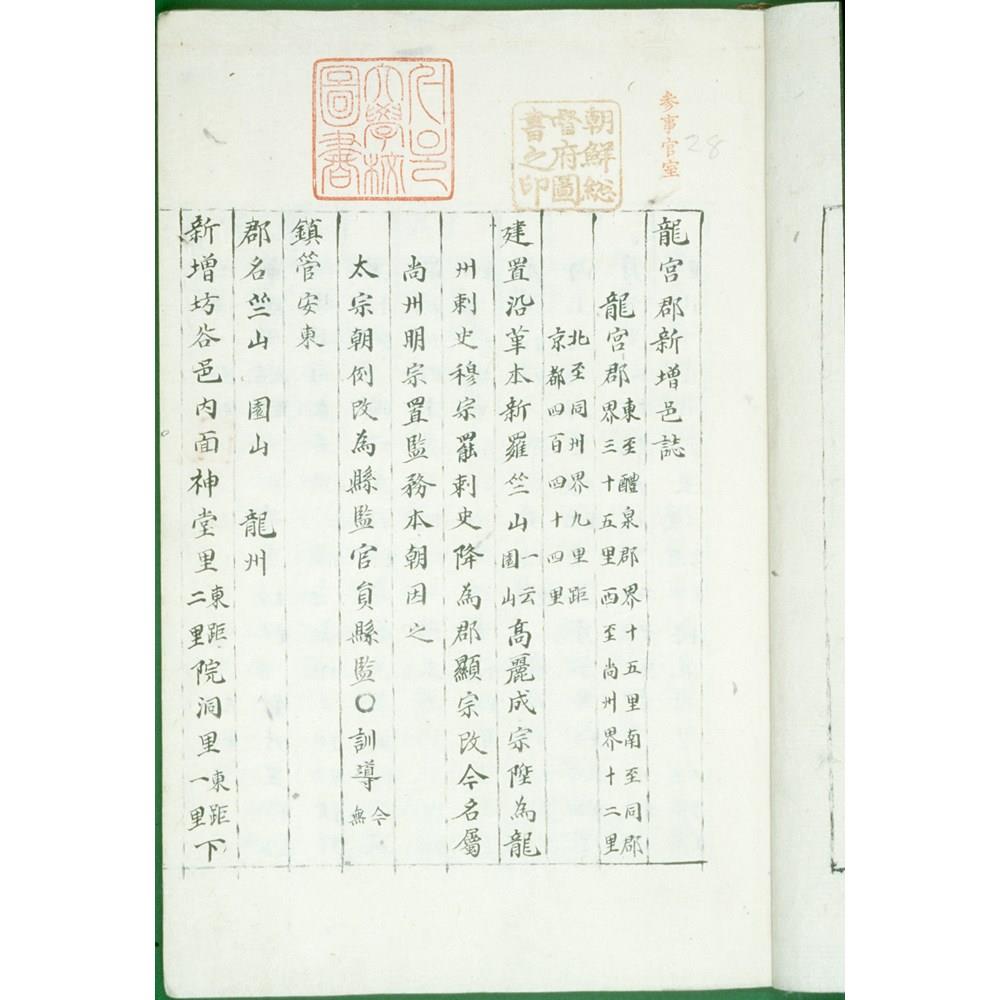 参事官室
28
朝鮮総督府圖書之印
서울大學校圖書
龍宮郡新增邑誌
龍宮郡東至醴泉郡界十五里南至同郡界三十五里西至尚州界十二里
北至同州界九里距京都四百四十四里
建置沿革本新羅竺山一云園山高麗成宗陞為龍
州刺史穆宗罷刺史降為郡顯宗改今名屬
尚州明宗置監務本朝因之
太宗朝例改為縣監官員縣監○訓導今無
鎮管安東
郡名竺山 園山 龍州
新增坊谷邑内面神堂里東距二里院洞里東距一里下